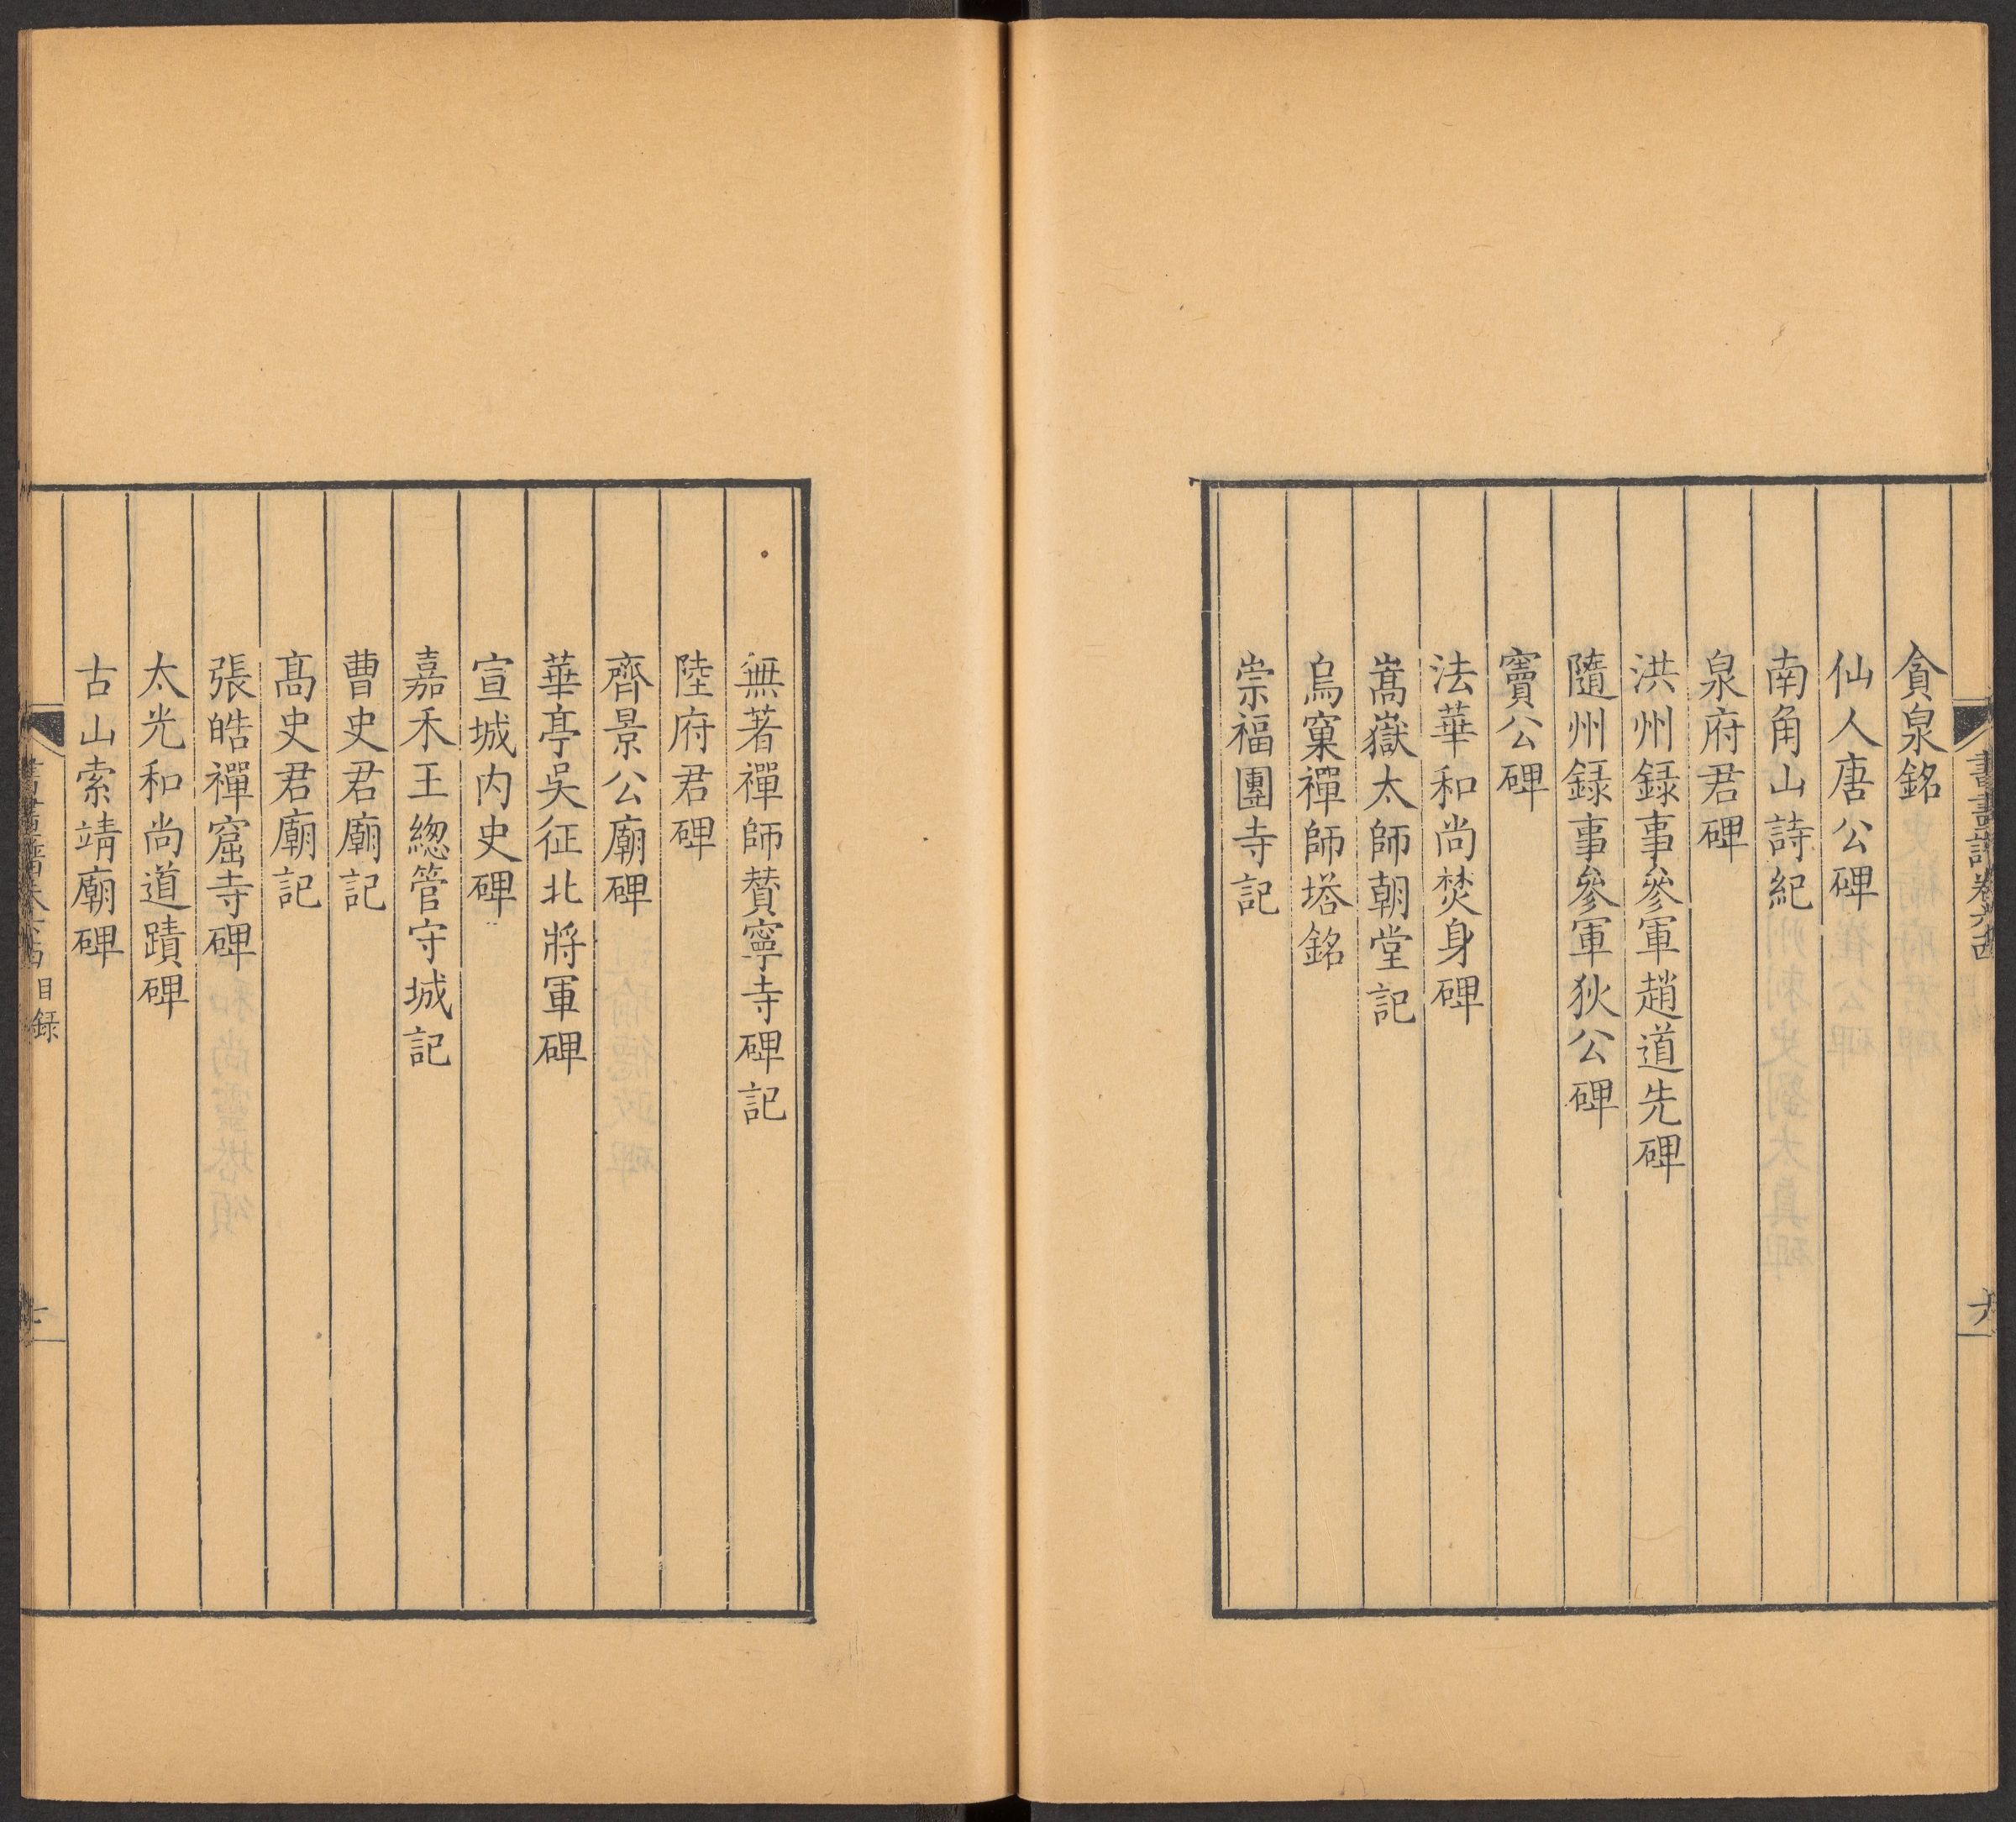 貪泉銘
仙人唐公碑
南角山詩紀
泉府君碑
洪州録事參軍趙道先碑
隨州録事參軍狄公碑
竇公碑
法華和尚焚身碑
嵩嶽太師朝堂記
烏窠禪師塔銘
崇福團寺記
無著禪師賛寧寺碑記
陸府君碑
齊景公廟碑
華亭吳征北將軍碑
宣城内史碑
嘉禾王緫管守城記
曹史君廟記
髙史君廟記
張皓禪窟寺碑
太光和尚道蹟碑
古山索靖廟碑
目録
七